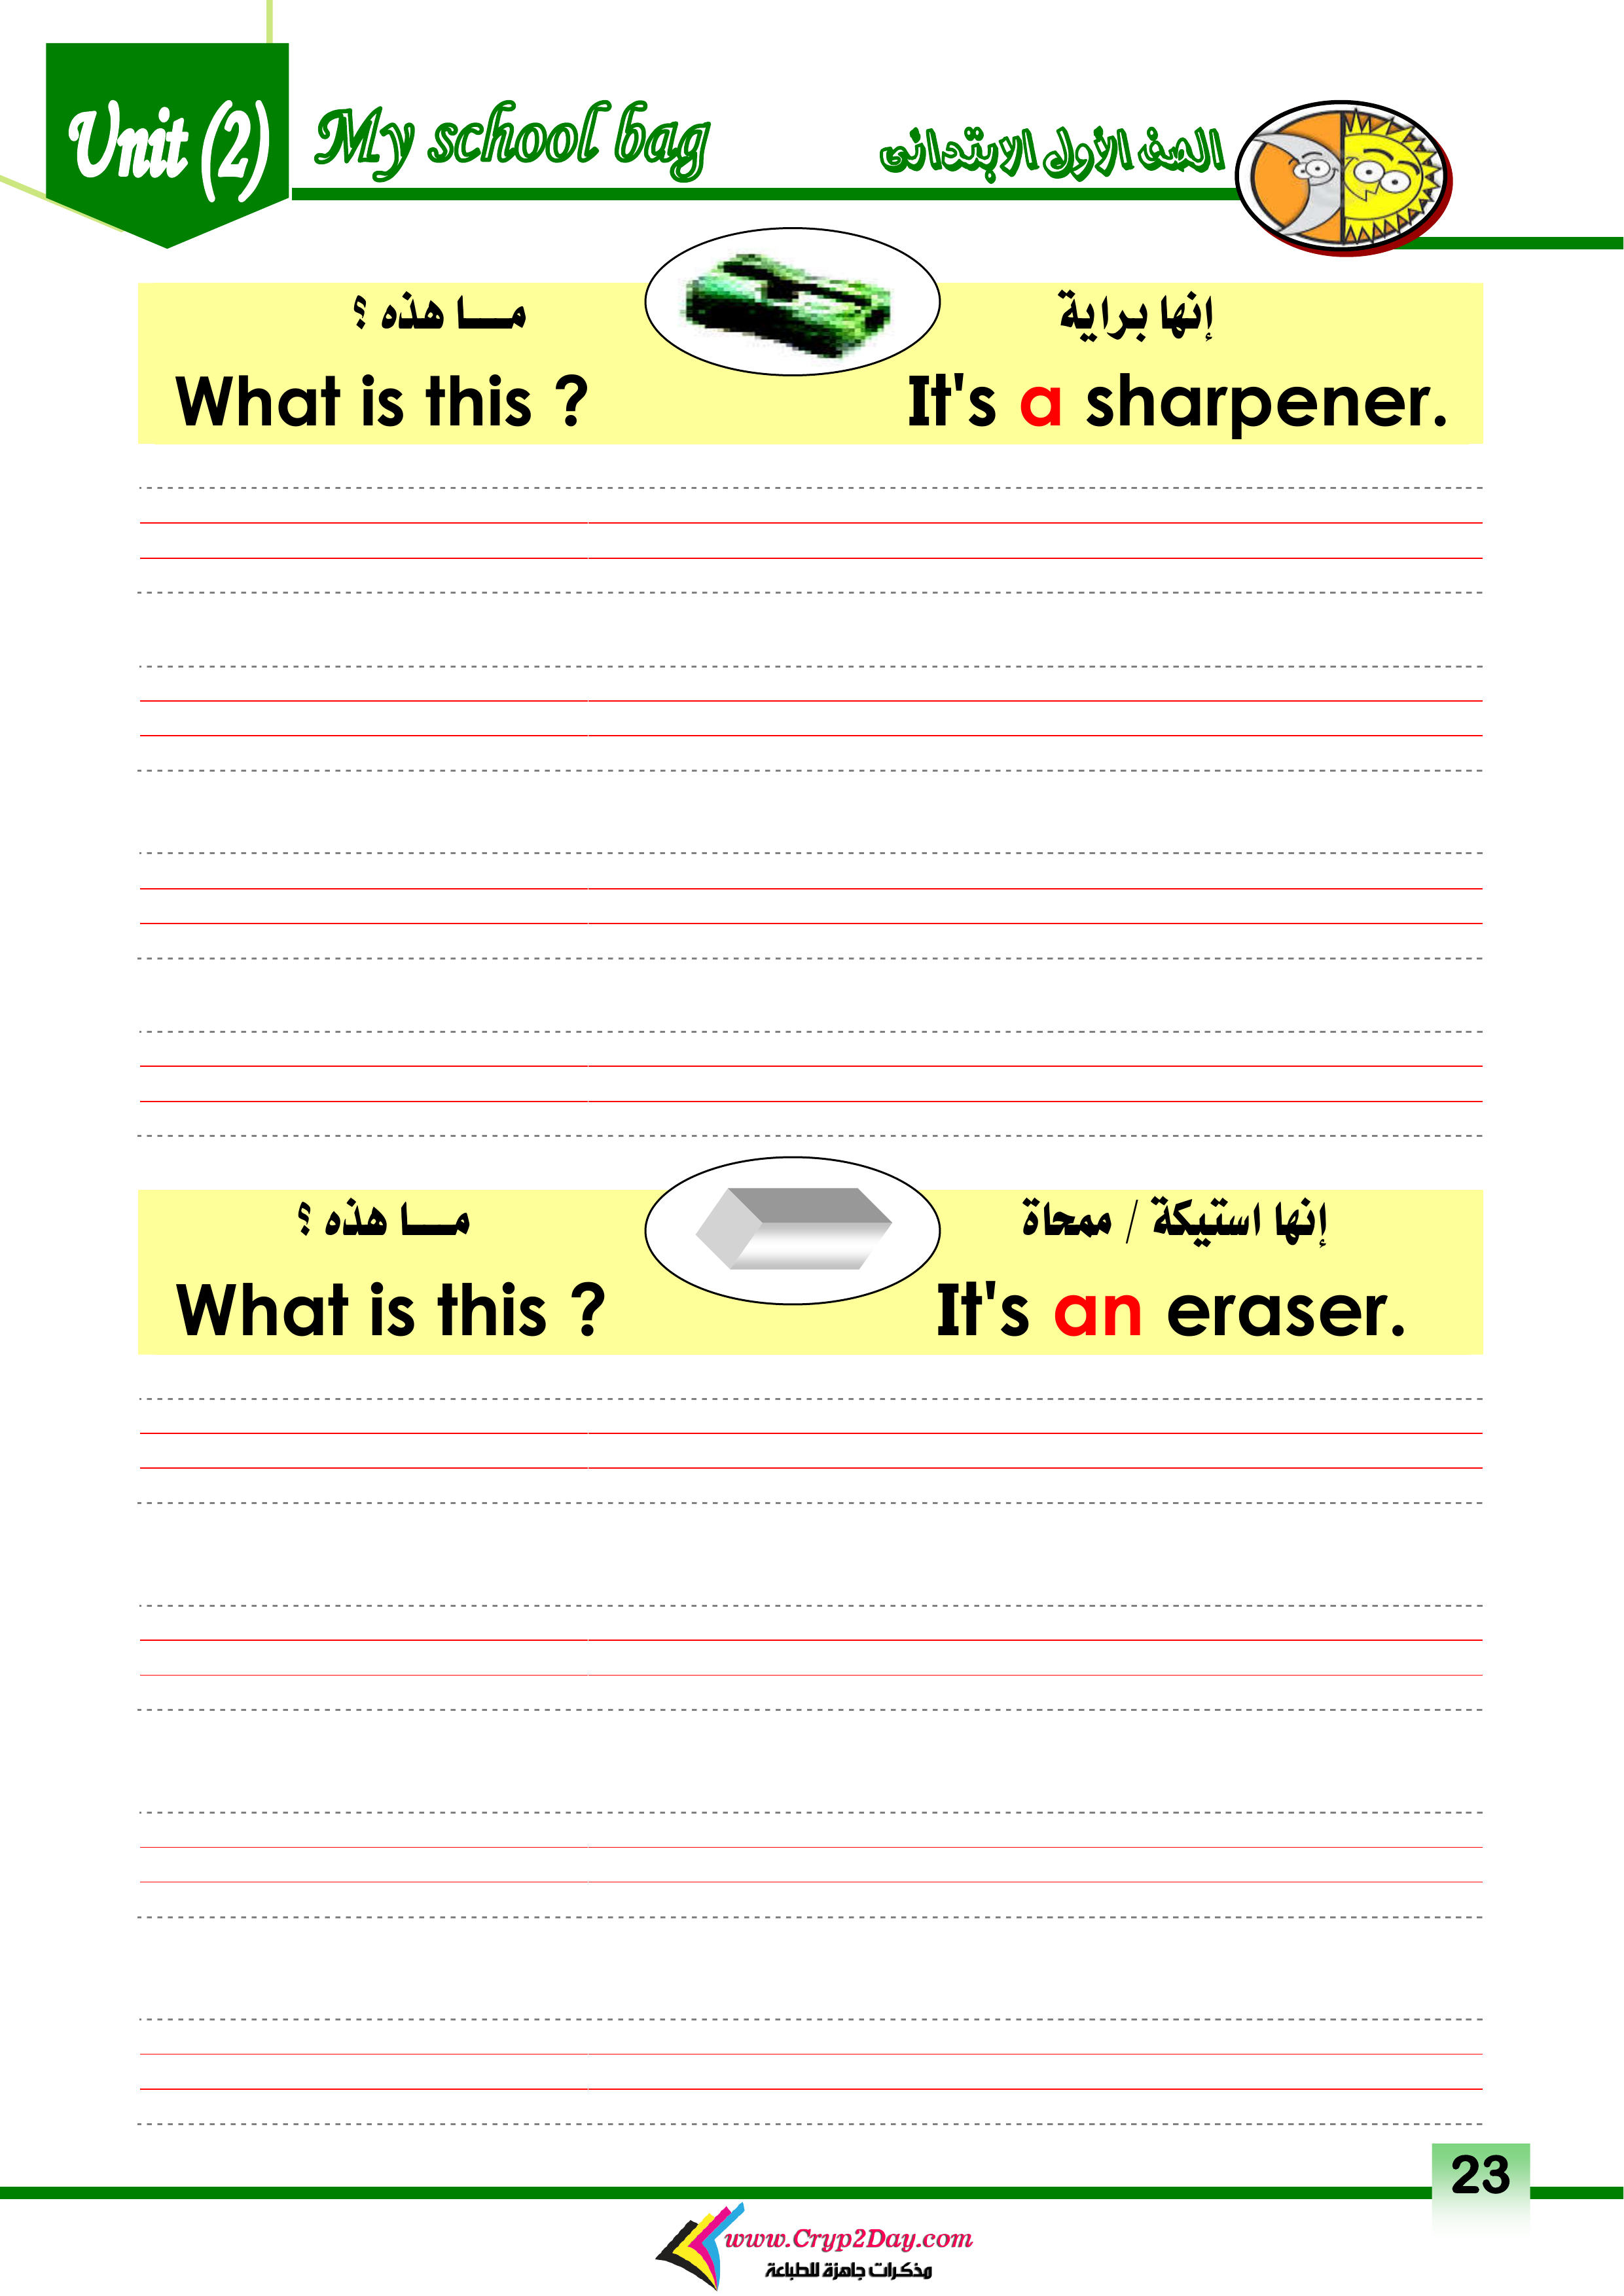 Unit (2)
My school bag
الصف الأول الابتدائى
مـــا هذه ؟
إنها براية
What is this ?
It's a sharpener.
مـــا هذه ؟
إنها استيكة / ممحاة
What is this ?
It's an eraser.
23
www.Cryp2Day.com
مذكرات جاهزة للطباعة